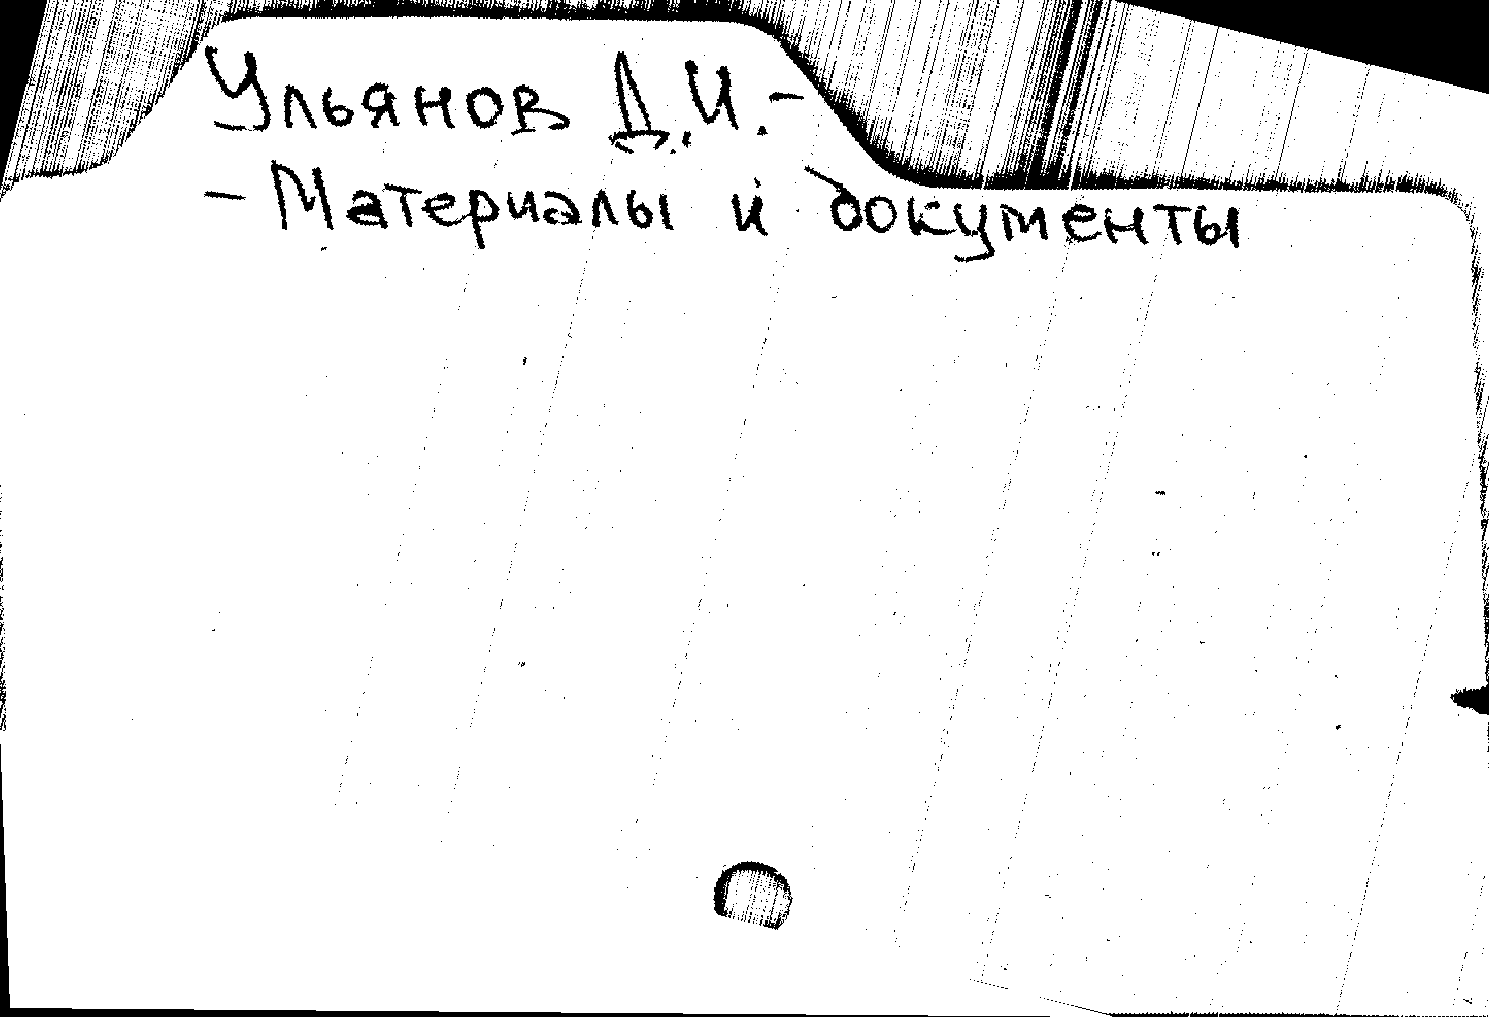 Ульянов Д.И. -
- Материалы и документы